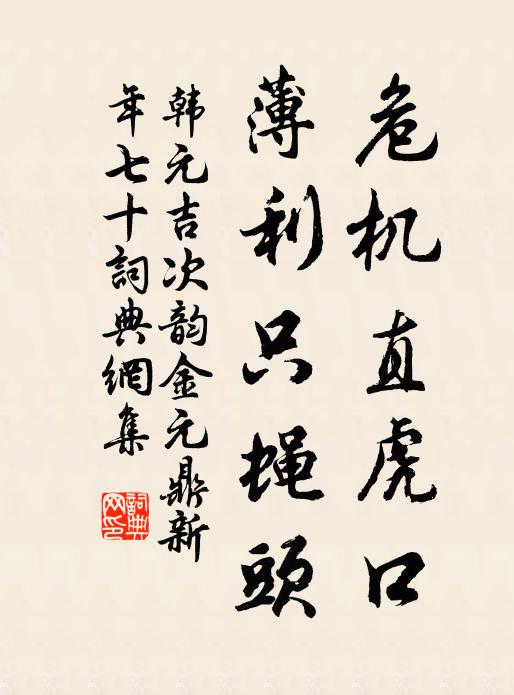 危机直虎口
薄利只蝇頭
韩元吉次韵金元鼎新
年七十詞典網集
詞典網印